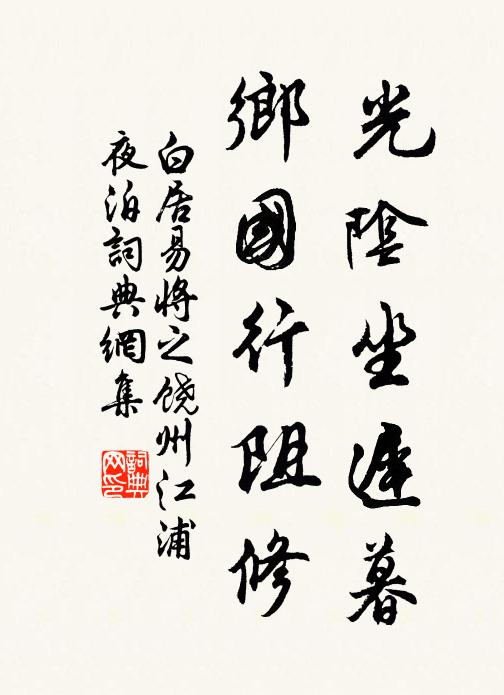 光陰坐遲暮
鄉國行阻修
白居易將之饶州江浦
夜泊詞典網集
詞典
网印